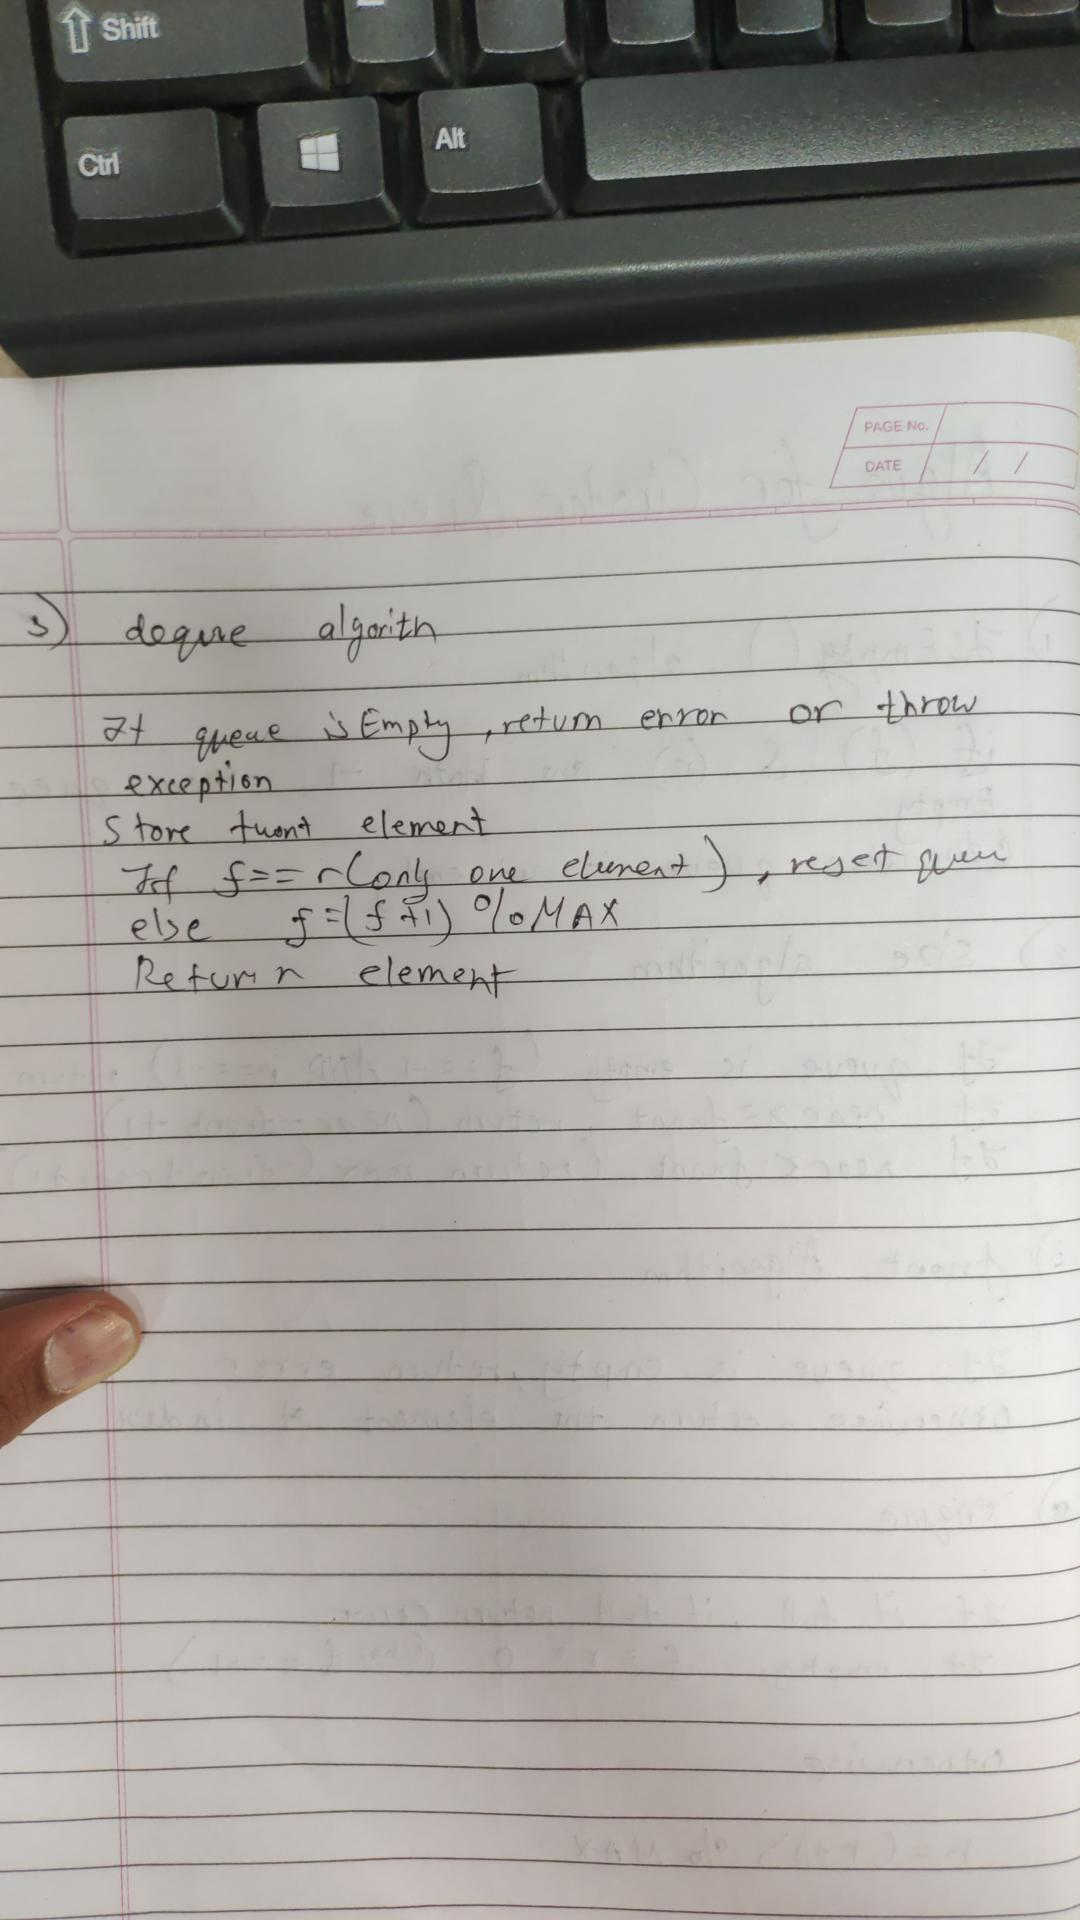 Shift
Ctrl
Alt
PAGE No.
DATE / /
5) deque algorith
If queue isEmpty, return error or throw
exception
Store fuont element
If f==r(only one element), reset queu
else f=(f+1) %MAX
Return element